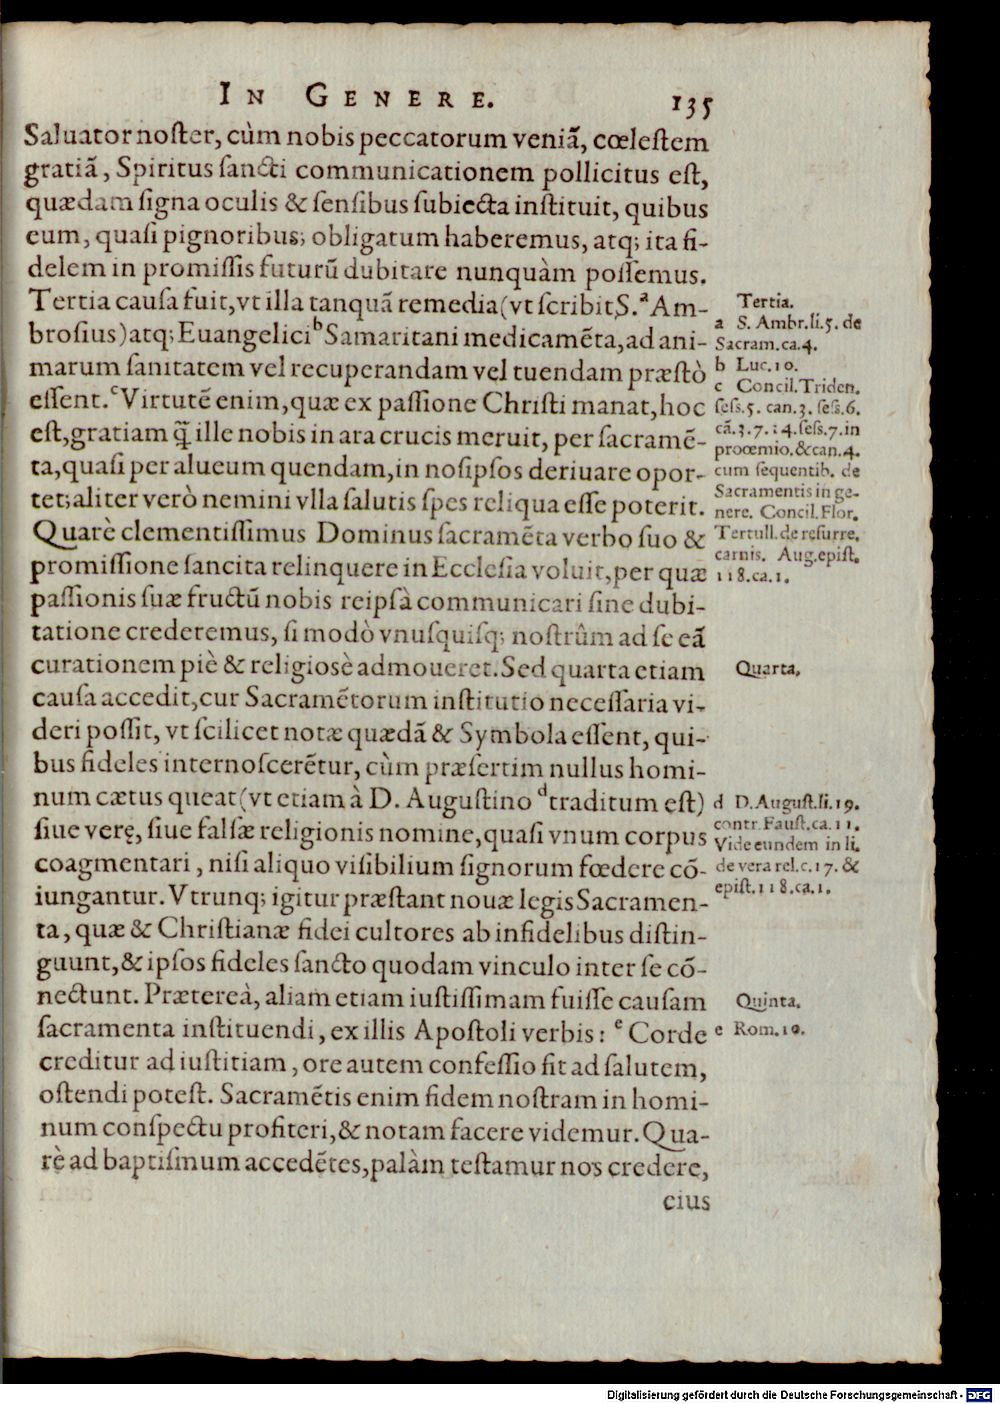 IN GENERE. 135
Saluator noſter, cùm nobis peccatorum veniã, cœleſtem
gratiã, Spiritus ſancti communicationem pollicitus eſt,
quædam ſigna oculis & ſenſibus ſubiecta inſtituit, quibus
eum, quaſi pignoribus, obligatum haberemus, atq; ita fi-
delem in promiſſis futurũ dubitare nunquàm poſſemus.
Tertia cauſa fuit, vt illa tanquã remedia (vt ſcribit S. ᵃ Am-
broſius) atq; Euangelici ᵇ Samaritani medicamẽta, ad ani-
marum ſanitatem vel recuperandam vel tuendam præſtò
eſſent. ᶜ Virtutẽ enim, quæ ex paſſione Chriſti manat, hoc
eſt, gratiam q̃ ille nobis in ara crucis meruit, per ſacramẽ-
ta, quaſi per alueum quendam, in noſipſos deriuare opor-
tet; aliter verò nemini vlla ſalutis ſpes reliqua eſſe poterit.
Quarè clementiſſimus Dominus ſacramẽta verbo ſuo &
promiſſione ſancita relinquere in Eccleſia voluit, per quæ
paſſionis ſuæ fructũ nobis reipſà communicari ſine dubi-
tatione crederemus, ſi modò vnuſquiſq; noſtrûm ad ſe eã
curationem piè & religiosè admoueret. Sed quarta etiam
cauſa accedit, cur Sacramẽtorum inſtitutio neceſſaria vi-
deri poſſit, vt ſcilicet notæ quædã & Symbola eſſent, qui-
bus fideles internoſcerẽtur, cùm præſertim nullus homi-
num cætus queat (vt etiam à D. Auguſtino ᵈ traditum eſt)
ſiue verę, ſiue falſæ religionis nomine, quaſi vnum corpus
coagmentari, niſi aliquo viſibilium ſignorum fœdere cõ-
iungantur. Vtrunq; igitur præſtant nouæ legis Sacramen-
ta, quæ & Chriſtianæ fidei cultores ab infidelibus diſtin-
guunt, & ipſos fideles ſancto quodam vinculo inter ſe cõ-
nectunt. Prætereà, aliam etiam iuſtiſſimam fuiſſe cauſam
ſacramenta inſtituendi, ex illis Apoſtoli verbis: ᵉ Corde
creditur ad iuſtitiam, ore autem confeſſio fit ad ſalutem,
oſtendi poteſt. Sacramẽtis enim fidem noſtram in homi-
num conſpectu profiteri, & notam facere videmur. Qua-
rè ad baptiſmum accedẽtes, palàm teſtamur nos credere,
eius
Tertia.
a S. Ambr. li. 5. de
Sacram. ca. 4.
b Luc. 10.
c Concil. Triden.
ſeſs. 5. can. 3. ſeſs. 6.
cã. 3. 7. 14. ſeſs. 7. in
proœmio. & can. 4.
cum ſequentib. de
Sacramentis in ge-
nere. Concil. Flor.
Tertull. de reſurre.
carnis. Aug. epiſt.
118. ca. 1.
Quarta.
d D. Auguſt. li. 19.
contr. Fauſt. ca. 11.
Vide eundem in li.
de vera rel. c. 17. &
epiſt. 118. ca. 1.
Quinta.
e Rom. 10.
Digitalisierung gefördert durch die Deutsche Forschungsgemeinschaft - DFG